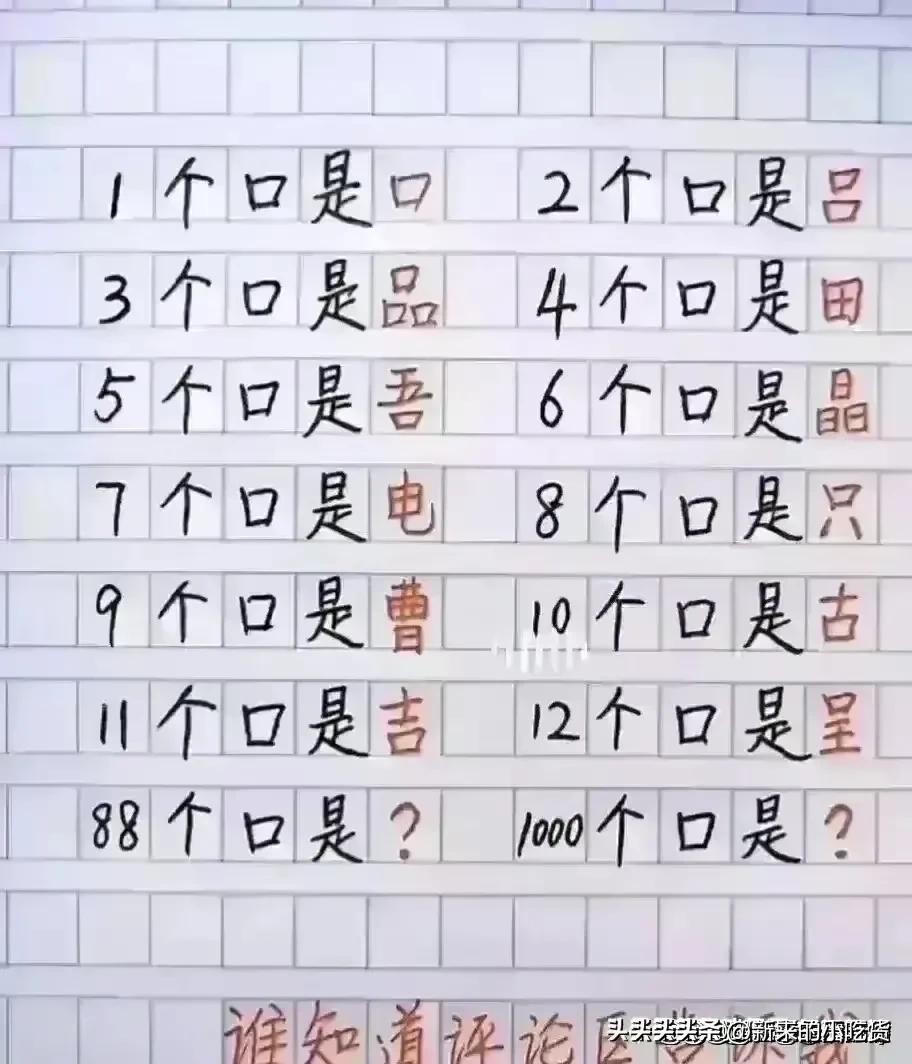 1个口是口 2个口是吕
3个口是品 4个口是田
5个口是吾 6个口是晶
7个口是电 8个口是只
9个口是曹 10个口是古
11个口是吉 12个口是呈
88个口是? 1000个口是?
谁知道评论区告诉我
@新来的小吃货